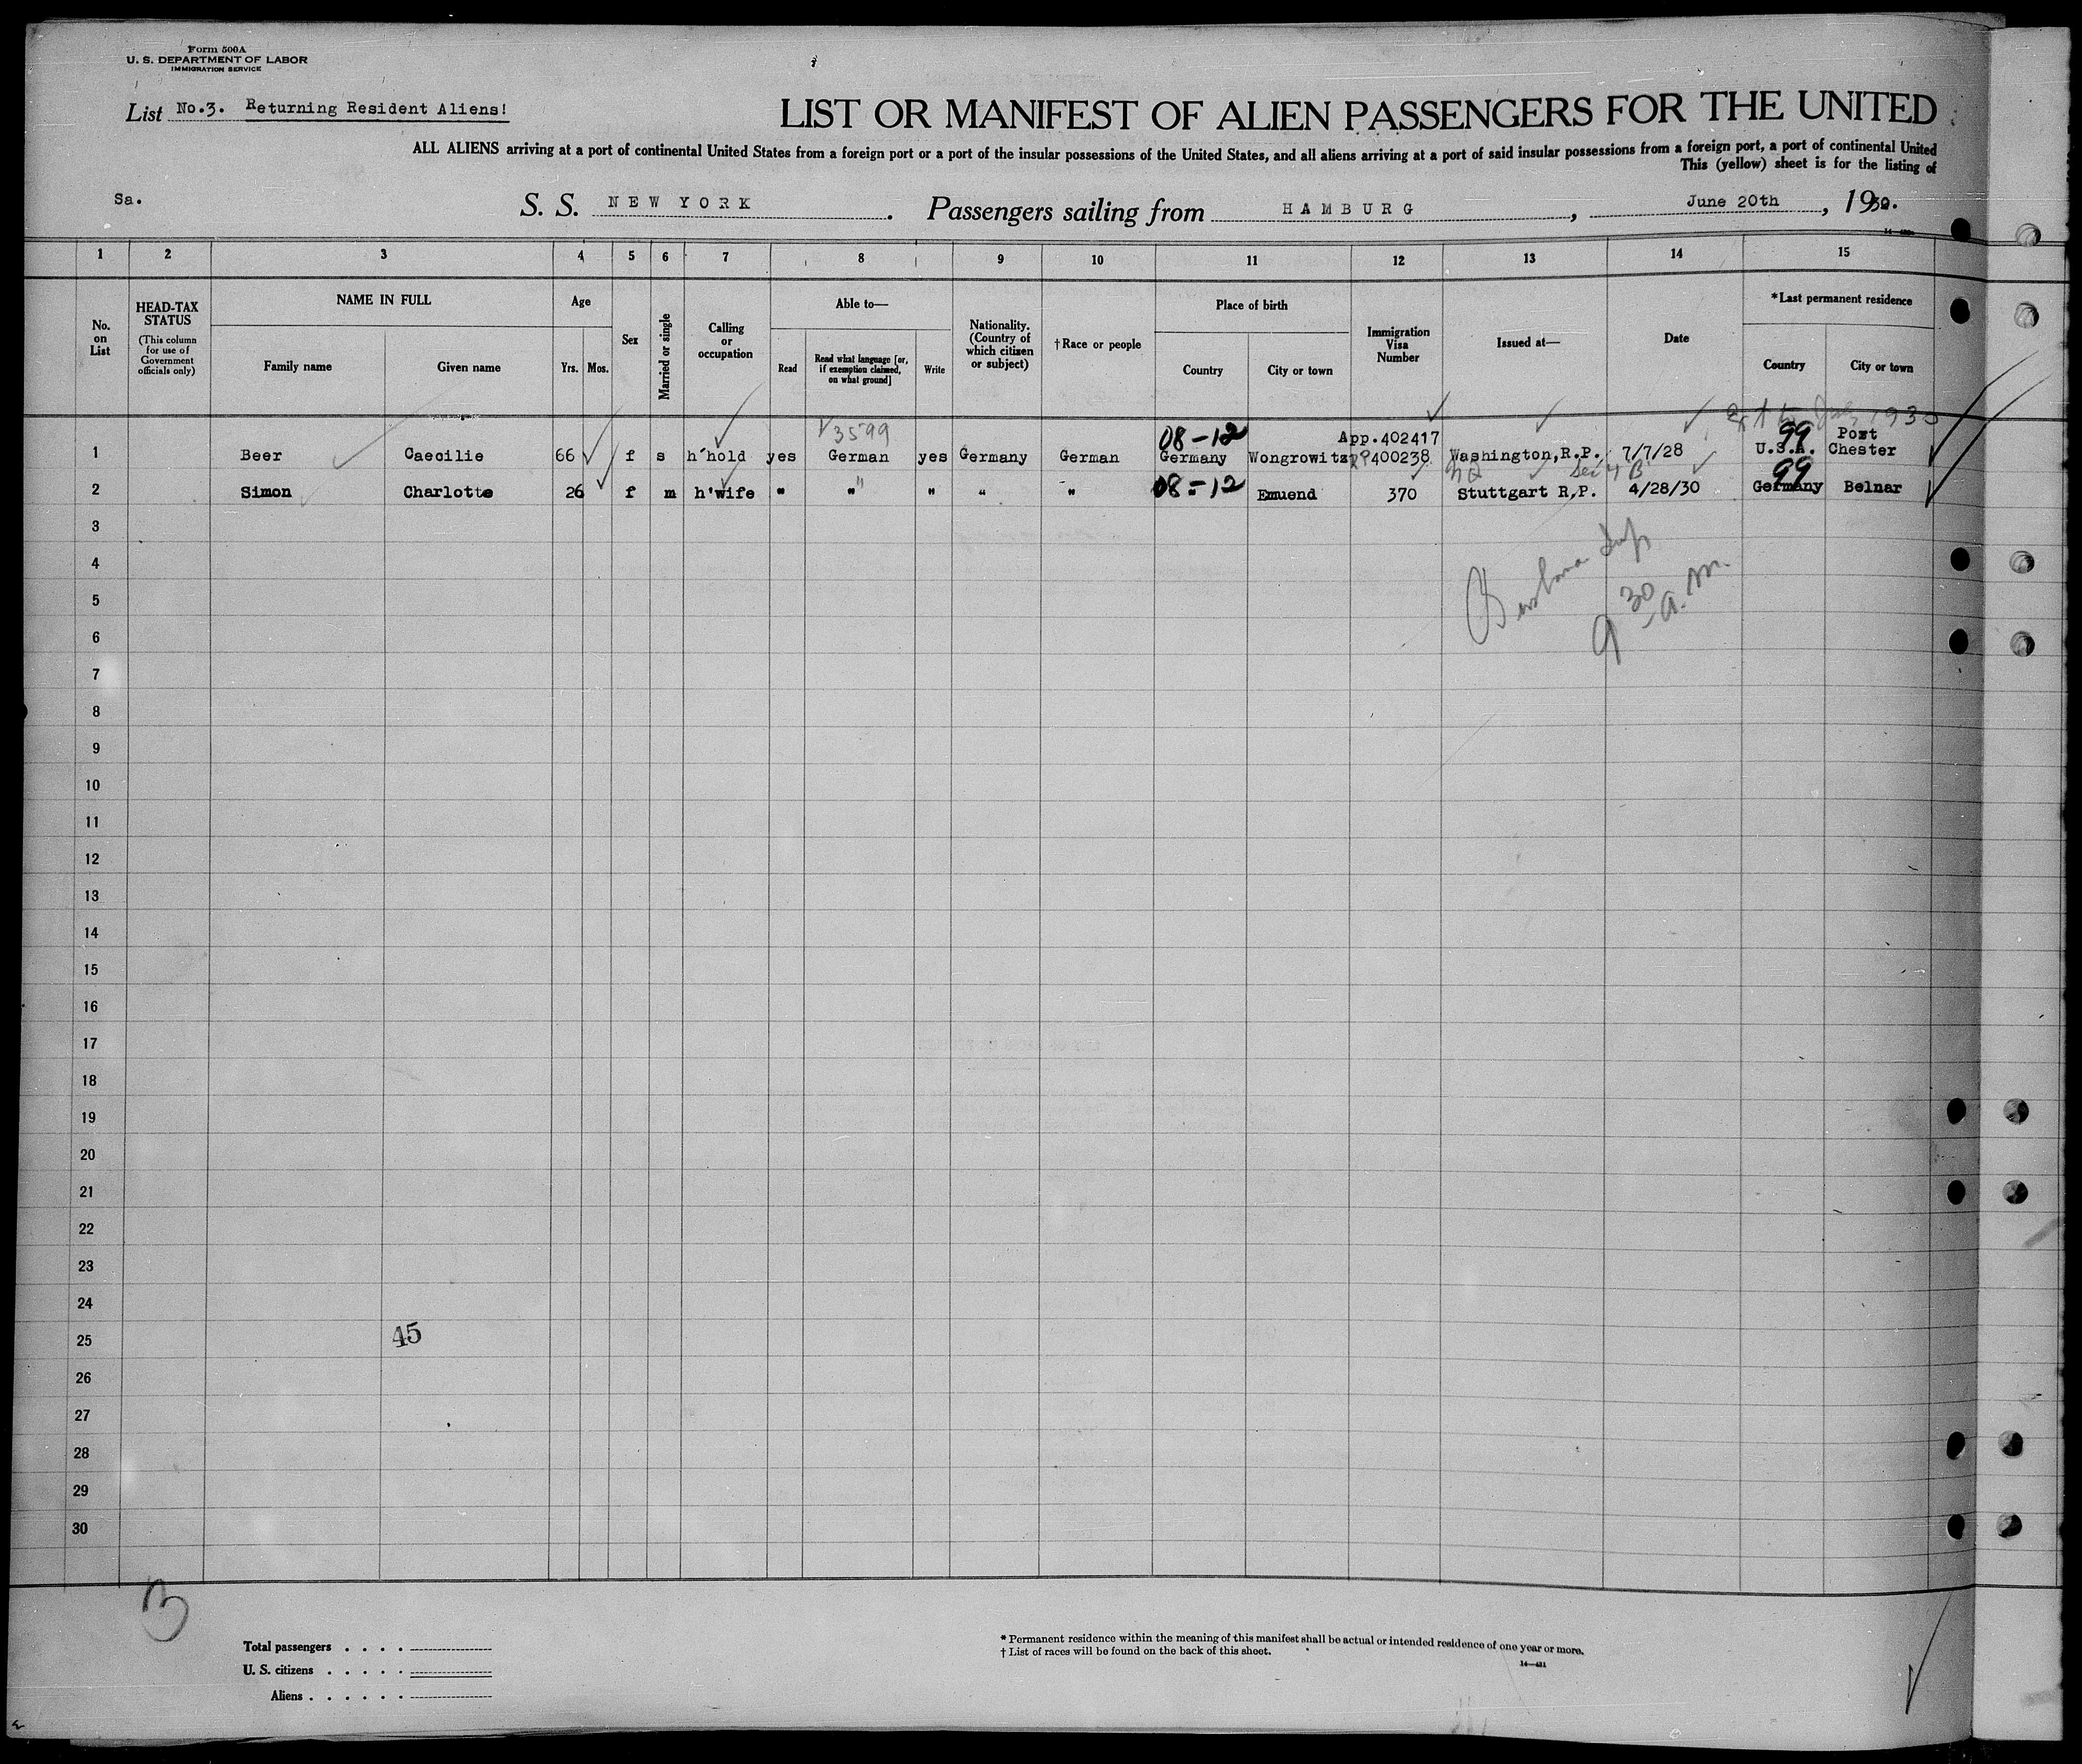 Form 500A
U. S. DEPARTMENT OF LABOR
IMMIGRATION SERVICE
List No.3. Returning Resident Aliens!
LIST OR MANIFEST OF ALIEN PASSENGERS FOR THE UNITED
ALL ALIENS arriving at a port of continental United States from a foreign port or a port of the insular possessions of the United States, and all aliens arriving at a port of said insular possessions from a foreign port, a port of continental United
This (yellow) sheet is for the listing of
Sa. S. S. NEW YORK. Passengers sailing from HAMBURG, June 20th, 1930.
1 2 3 4 5 6 7 8 9 10 11 12 13 14 15
No. on List
HEAD-TAX STATUS
(This column for use of Government officials only)
NAME IN FULL
Family name Given name
Age
Yrs. Mos.
Sex
Married or single
Calling or occupation
Able to—
Read
Read what language [or, if exemption claimed, on what ground]
Write
Nationality. (Country of which citizen or subject)
†Race or people
Place of birth
Country City or town
Immigration Visa Number
Issued at—
Date
*Last permanent residence
Country City or town
1930
3599 08-12 App.402417 99 Port
1 Beer Caecilie 66 f s h'hold yes German yes Germany German Germany Wongrowitz RP400238 Washington,R.P. 7/7/28 U.S.A. Chester
NQ Sec 4 B 99
2 Simon Charlotte 26 f m h'wife " " " " " 08-12 Emuend 370 Stuttgart R,P. 4/28/30 Germany Belnar
3
4
5
9 30 a.m.
6
7
8
9
10
11
12
13
14
15
16
17
18
19
20
21
22
23
24
25 45
26
27
28
29
30
3
Total passengers . . . .
U. S. citizens . . . . .
Aliens . . . . . .
* Permanent residence within the meaning of this manifest shall be actual or intended residence of one year or more.
† List of races will be found on the back of this sheet.
14—421